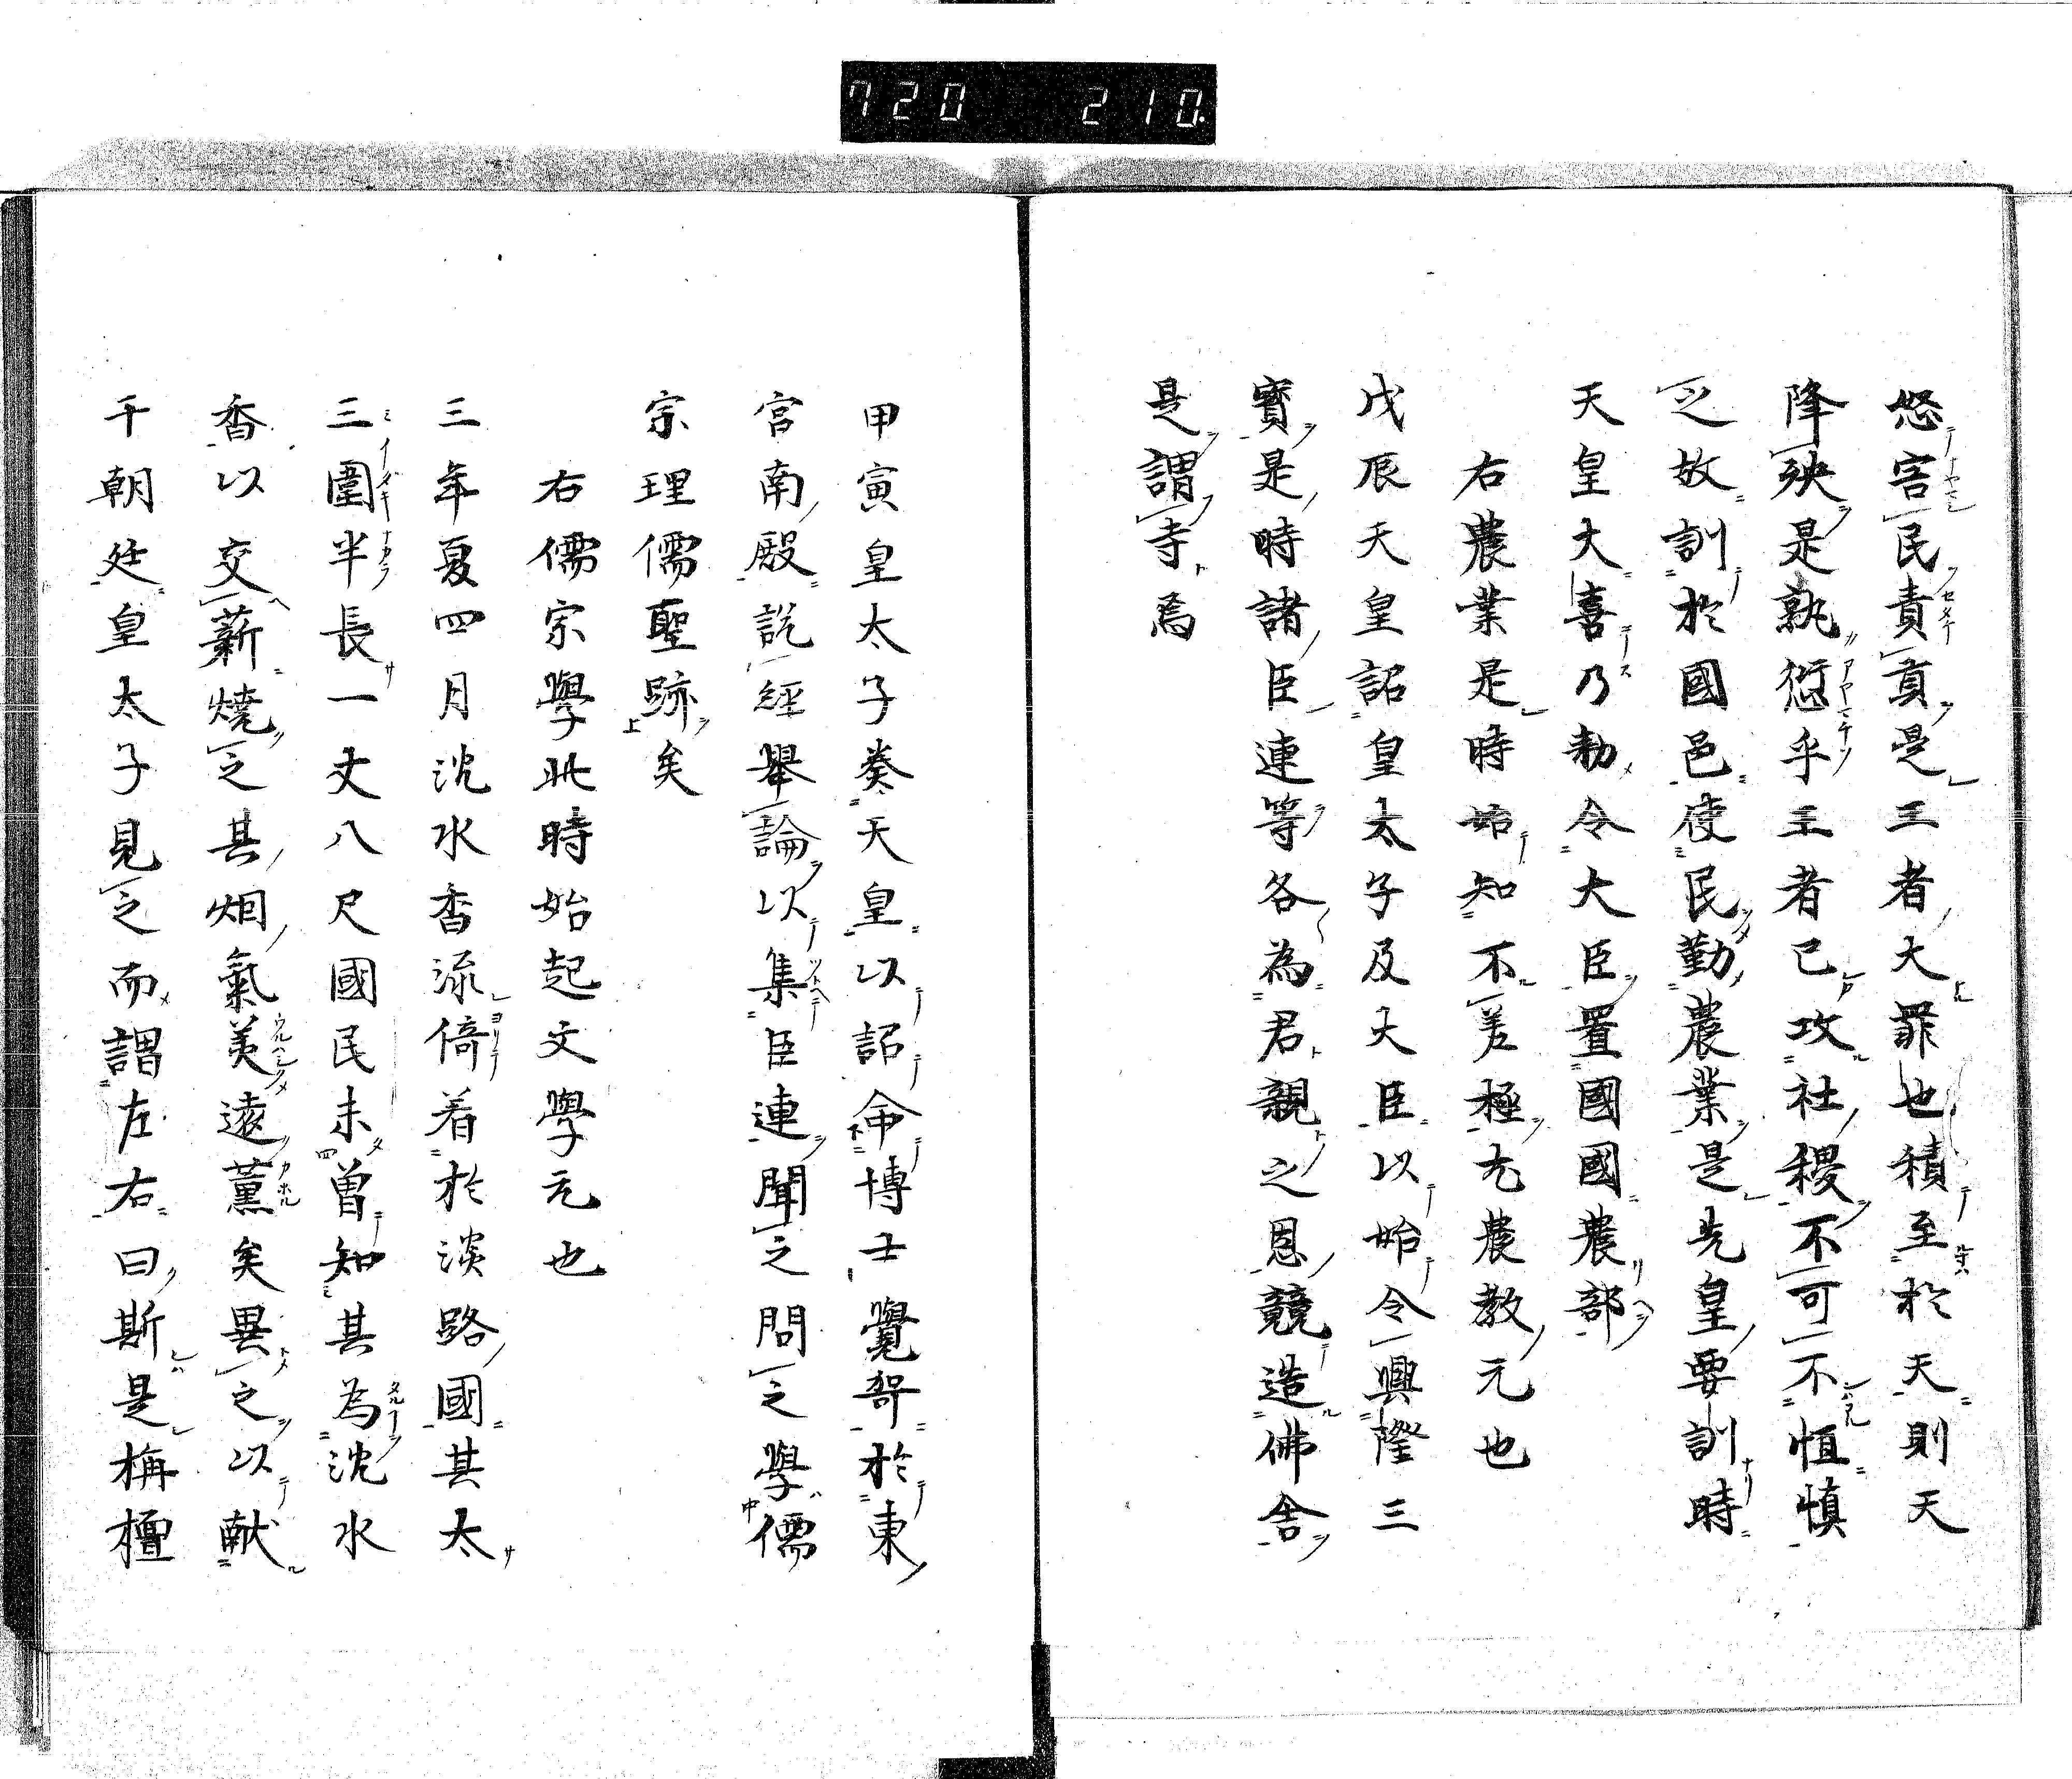 720 210
怒害民責貢是王者大罪也積至於天則天
降殃是孰愆乎王者已攻社稷不可不恒慎
之故訓於國邑使民勤農業是先皇要訓時
天皇大喜乃勅令大臣置國國農部
右農業是時始知不差極尢農教元也
戊辰天皇詔皇太子及大臣以始令興隆三
寳是時諸臣連等各為君親之恩競造佛舎
是謂寺焉
甲寅皇太子奏天皇以詔命博士覺哿於東
宮南殿説經舉論以集臣連聞之問之學儒
宗理儒聖跡矣
右儒宗學此時始起文學元也
三年夏四月沈水香流倚着於淡路國其太
三圍半長一丈八尺國民未曽知其為沈水
香以交薪燒之其烟氣美遠薫矣異之以献
于朝廷皇太子見之而謂左右曰斯是栴檀